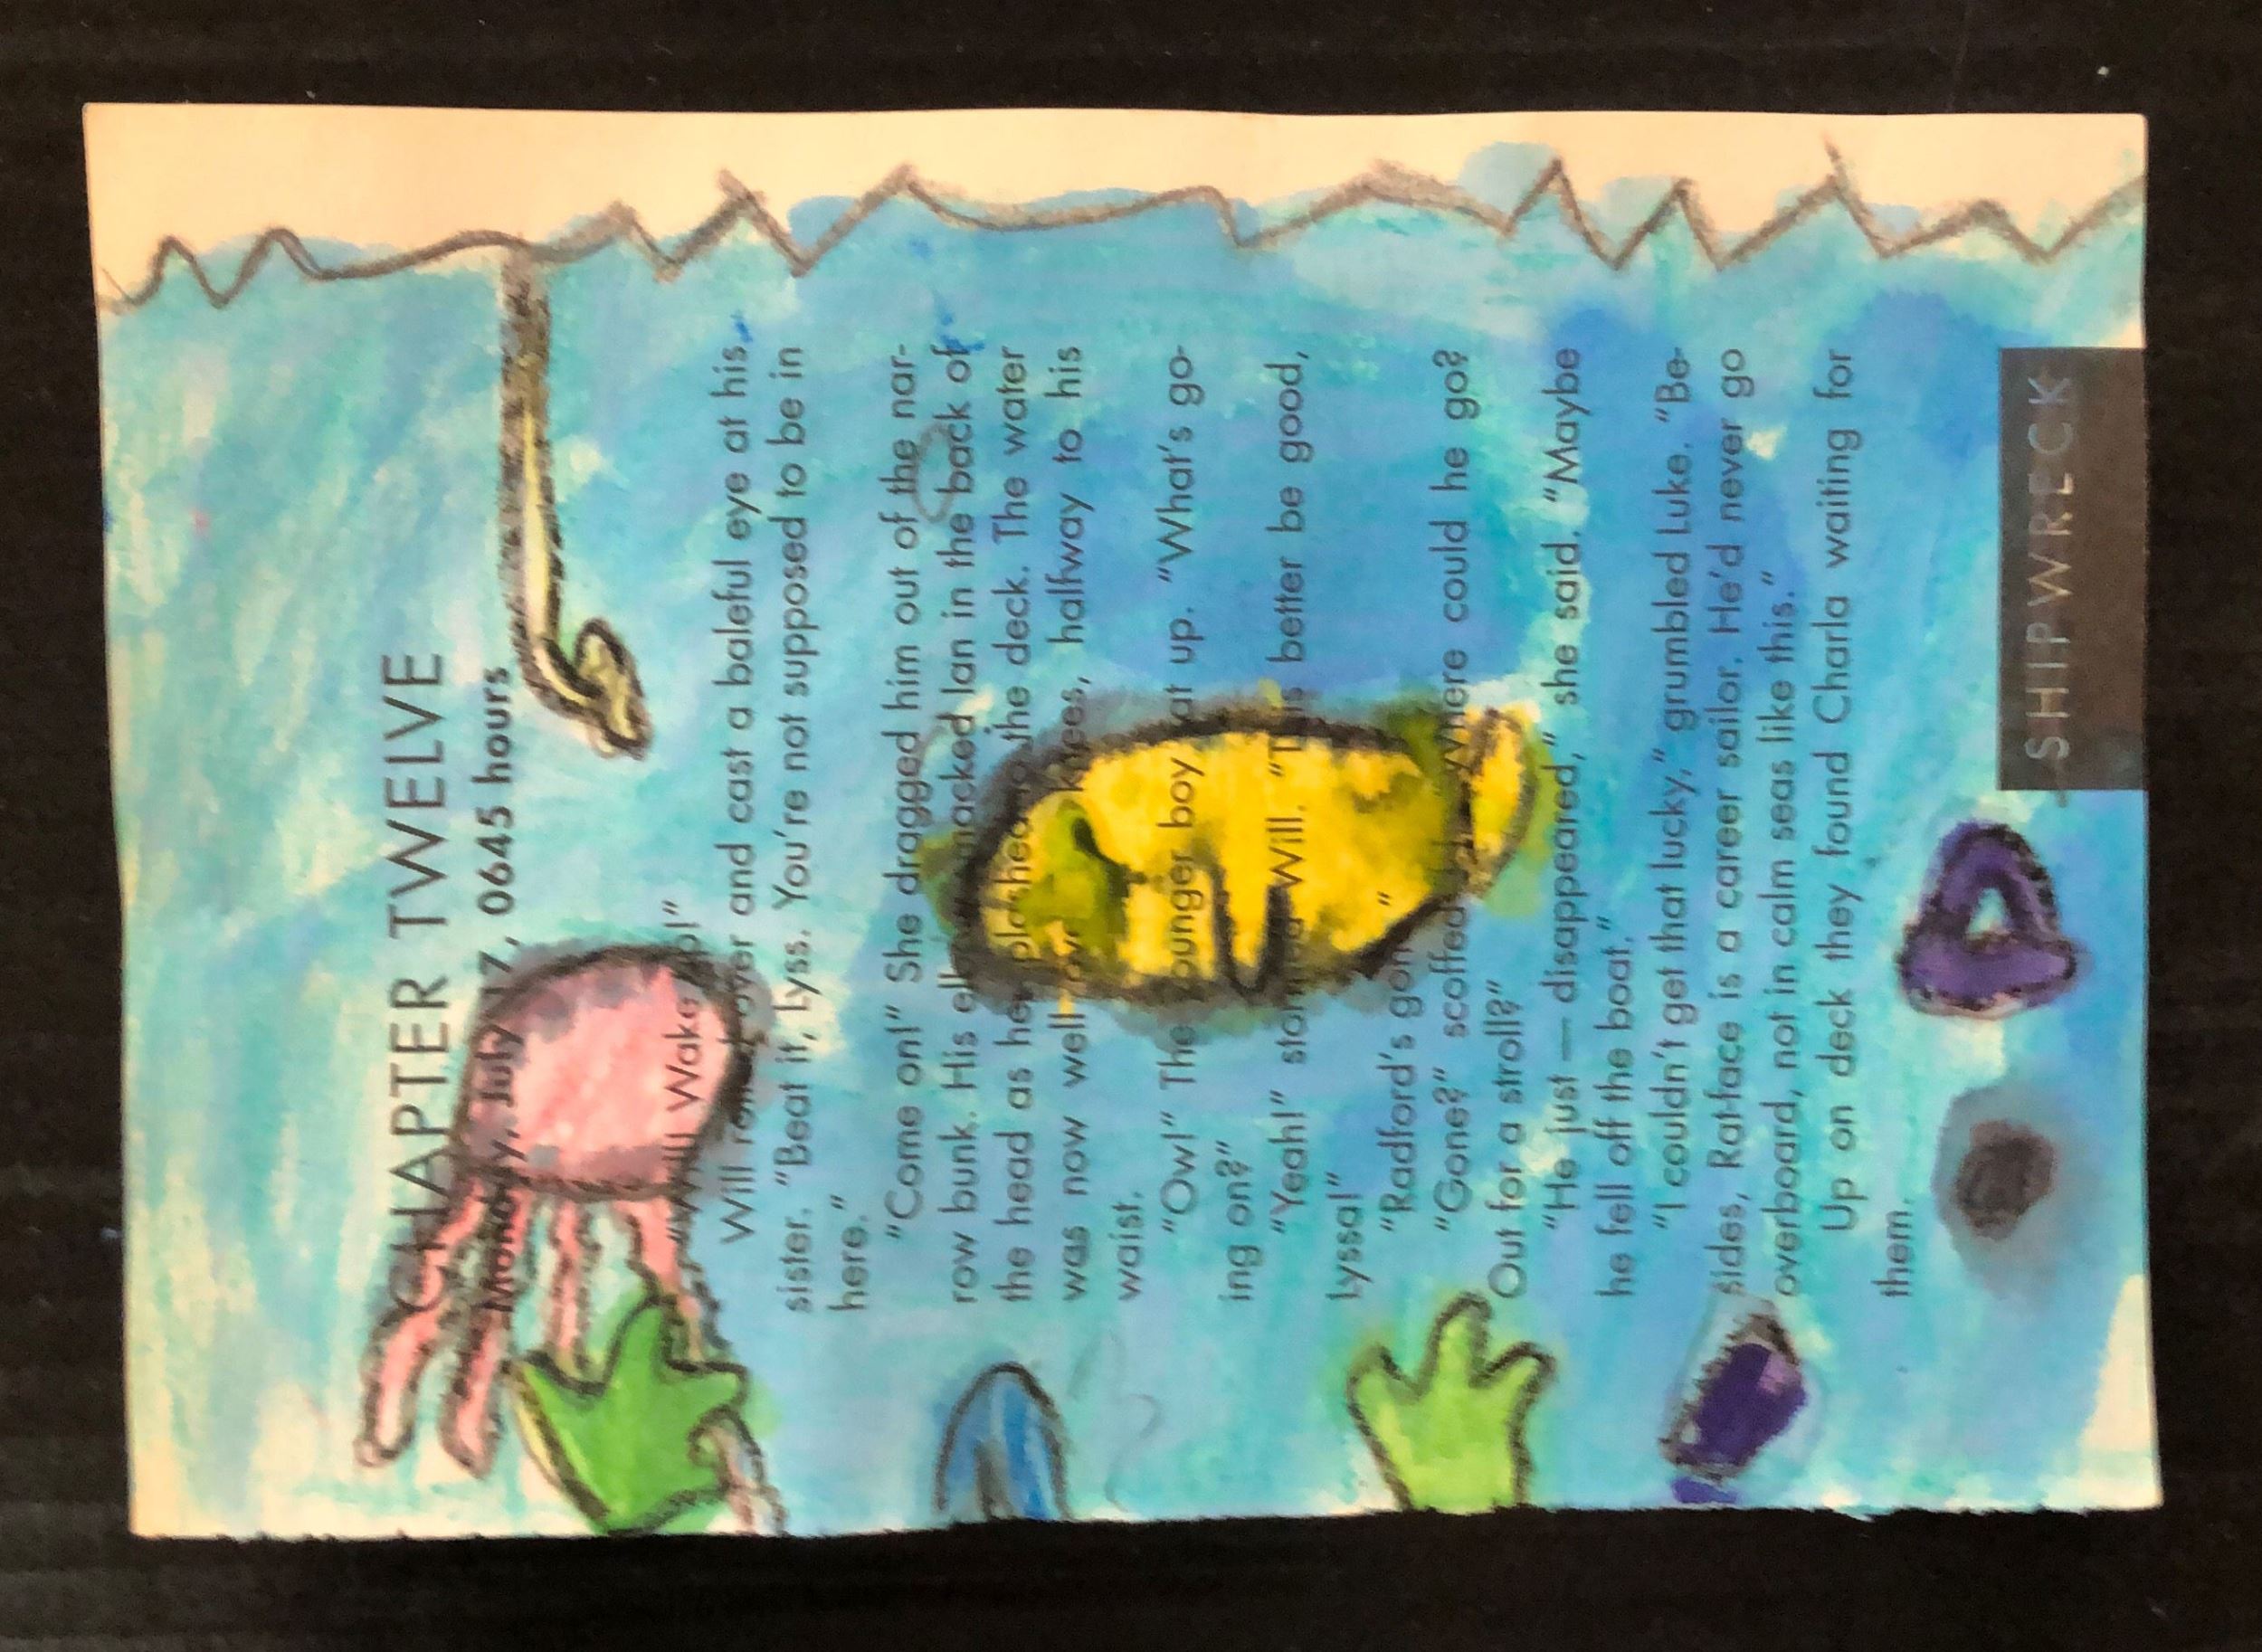 CHAPTER TWELVE
Monday, July 17, 0645 hours
"Will! Will! Wake up!"
Will rolled over and cast a baleful eye at his
sister. "Beat it, Lyss. You're not supposed to be in
here."
"Come on!" She dragged him out of the nar-
row bunk. His elbow smacked Ian in the back of
the head as he splashed to the deck. The water
was now well over knees, halfway to his
waist.
"Ow!" The younger boy sat up. "What's go-
ing on?"
"Yeah!" stormed Will. "This better be good,
Lyssa!"
"Radford's gone."
"Gone?" scoffed Where could he go?
Out for a stroll?"
"He just — disappeared," she said. "Maybe
he fell off the boat."
"I couldn't get that lucky," grumbled Luke. "Be-
sides, Rat-face is a career sailor. He'd never go
overboard, not in calm seas like this."
Up on deck they found Charla waiting for
them.
SHIPWRECK